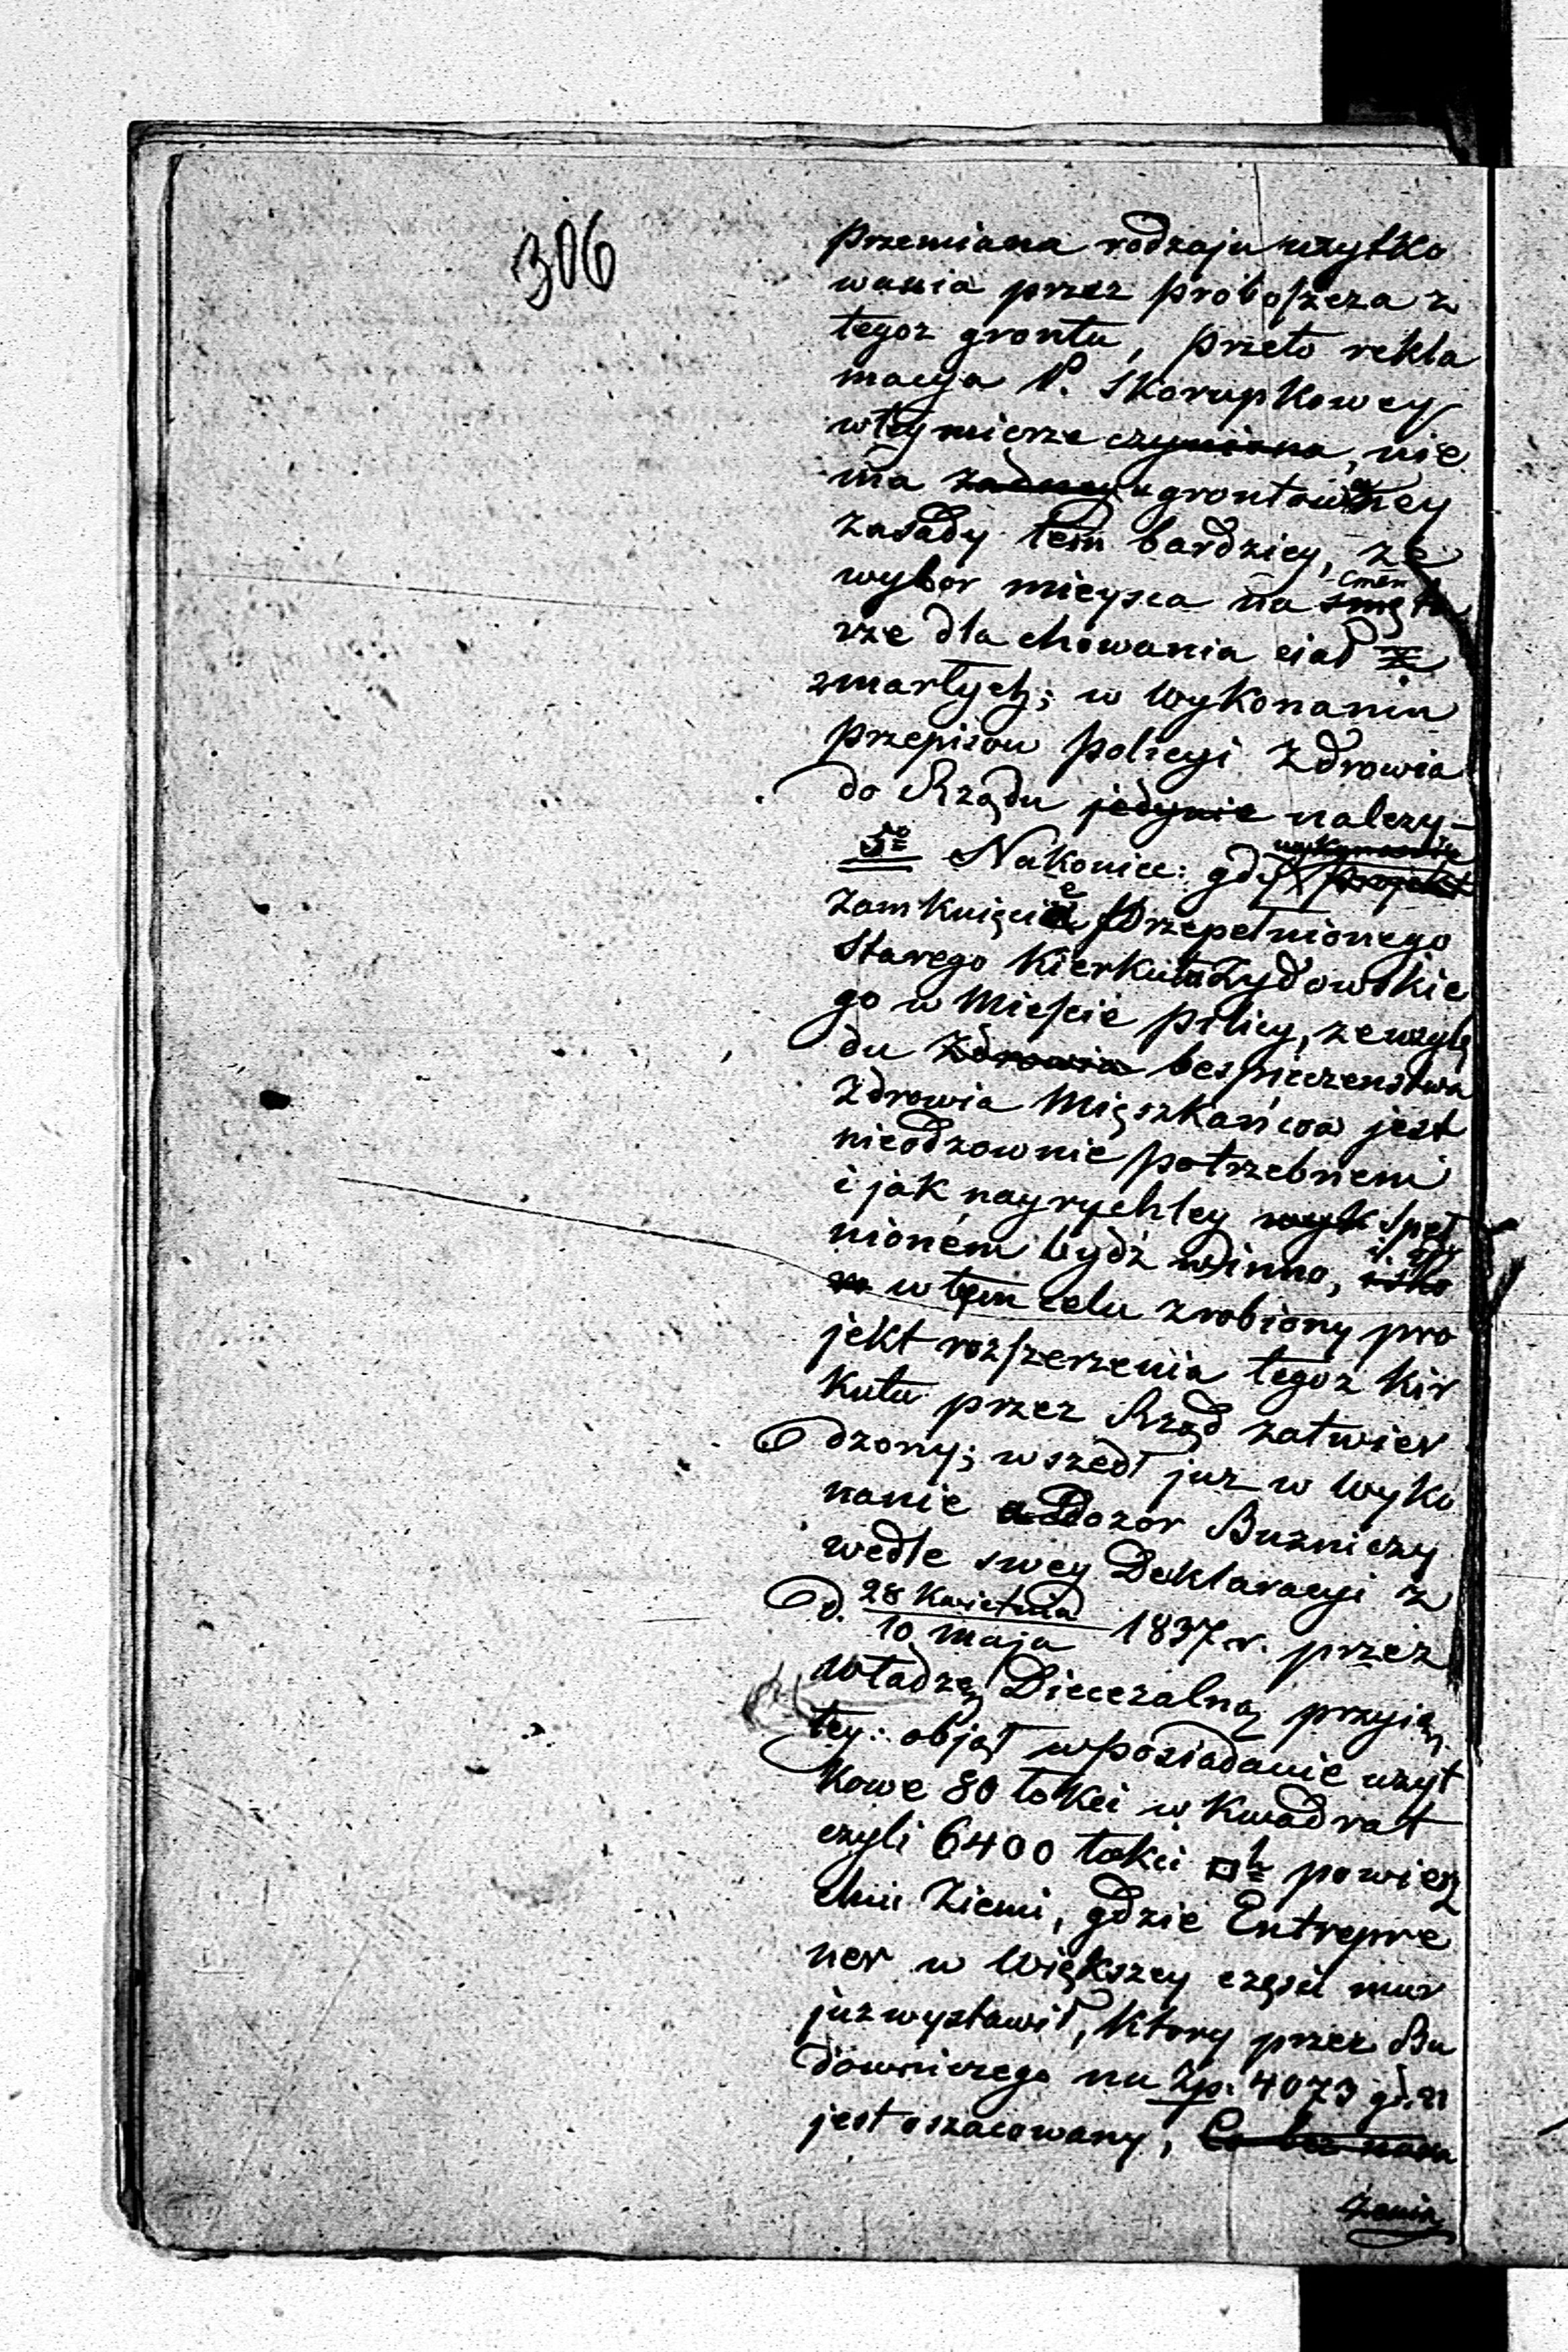 306
przemiana rodzaju uzytko
wania przez proboszcza z
tegoz grontu, przeto rekla
macya P. Skorupkowey
w tey mierze czyniona, nie
ma zadney ugrontowaney
zasady tem bardziey, ze
wybor mieysca na Cmen
rze dla chowania ciał
zmarłych; w wykonaniu
przepisow policyi Zdrowia
do Rządu jedynie nalezy_
5º Nakoniec: gdy wykonanie projekt
zamknięcie przepełnionego
starego Kierkuta Zydowskie
go w Mieście pilicy, ze wzglę
du Zdrowia bespieczenstwa
Zdrowia Mięszkańcow jest
nieodzownie potrzebnem
i jak nayrychley wyk speł
nionem bydź winno,
w tym celu zrobiony pro
jekt rozszerzenia tegoz kir
kutu przez Rząd zatwier
dzony; wszedł juz w wyko
nanie a Dozor Buzniczy
wedle swey Deklaracyi z
d. 28 Kwietnia
10 maja 1837 r. przez
władzę Diecezalną przyię
tey: objął w posiadanie uzyt
kowe 80 łokci w kwadrat
czyli 6400 łokci □ powierz
chni Ziemi, gdzie Entrepre
ner w większey części mur
juz wystawił, ktory przez Bu
downiczego na Zp. 4073 gr. 21
jest oszacowany, Co bez